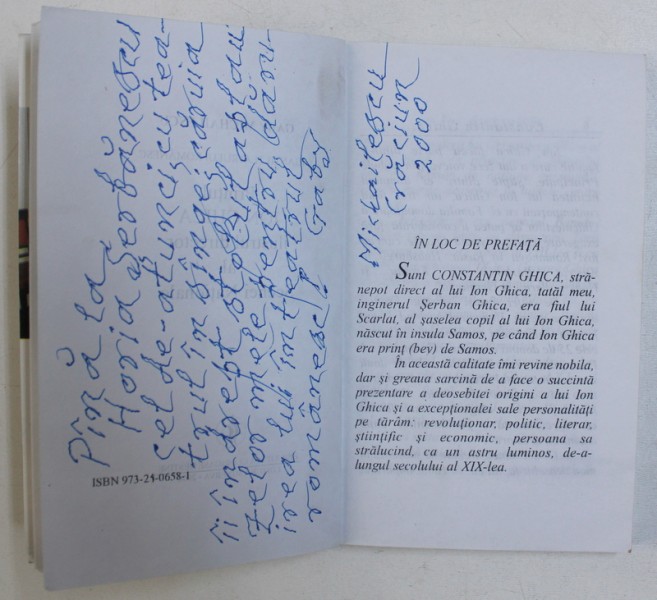 Pînă la
Horia Șerbănescu
cel de-atunci, cu tea-
trul în sînge, căruia
îi îndrept stolul aplau-
zelor mele pentru dăru-
irea lui în teatrul
românesc! Gaby
Mihailescu
Crăciun
2000
ISBN 973-24-0658-1
ÎN LOC DE PREFAȚĂ
Sunt CONSTANTIN GHICA, stră-
nepot direct al lui Ion Ghica, tatăl meu,
inginerul Șerban Ghica, era fiul lui
Scarlat, al șaselea copil al lui Ion Ghica,
născut în insula Samos, pe când Ion Ghica
era prinț (bev) de Samos.
În această calitate îmi revine nobila,
dar și greaua sarcină de a face o succintă
prezentare a deosebitei origini a lui Ion
Ghica și a excepționalei sale personalități
pe tărâm: revoluționar, politic, literar,
științific și economic, persoana sa
strălucind, ca un astru luminos, de-a-
lungul secolului al XIX-lea.